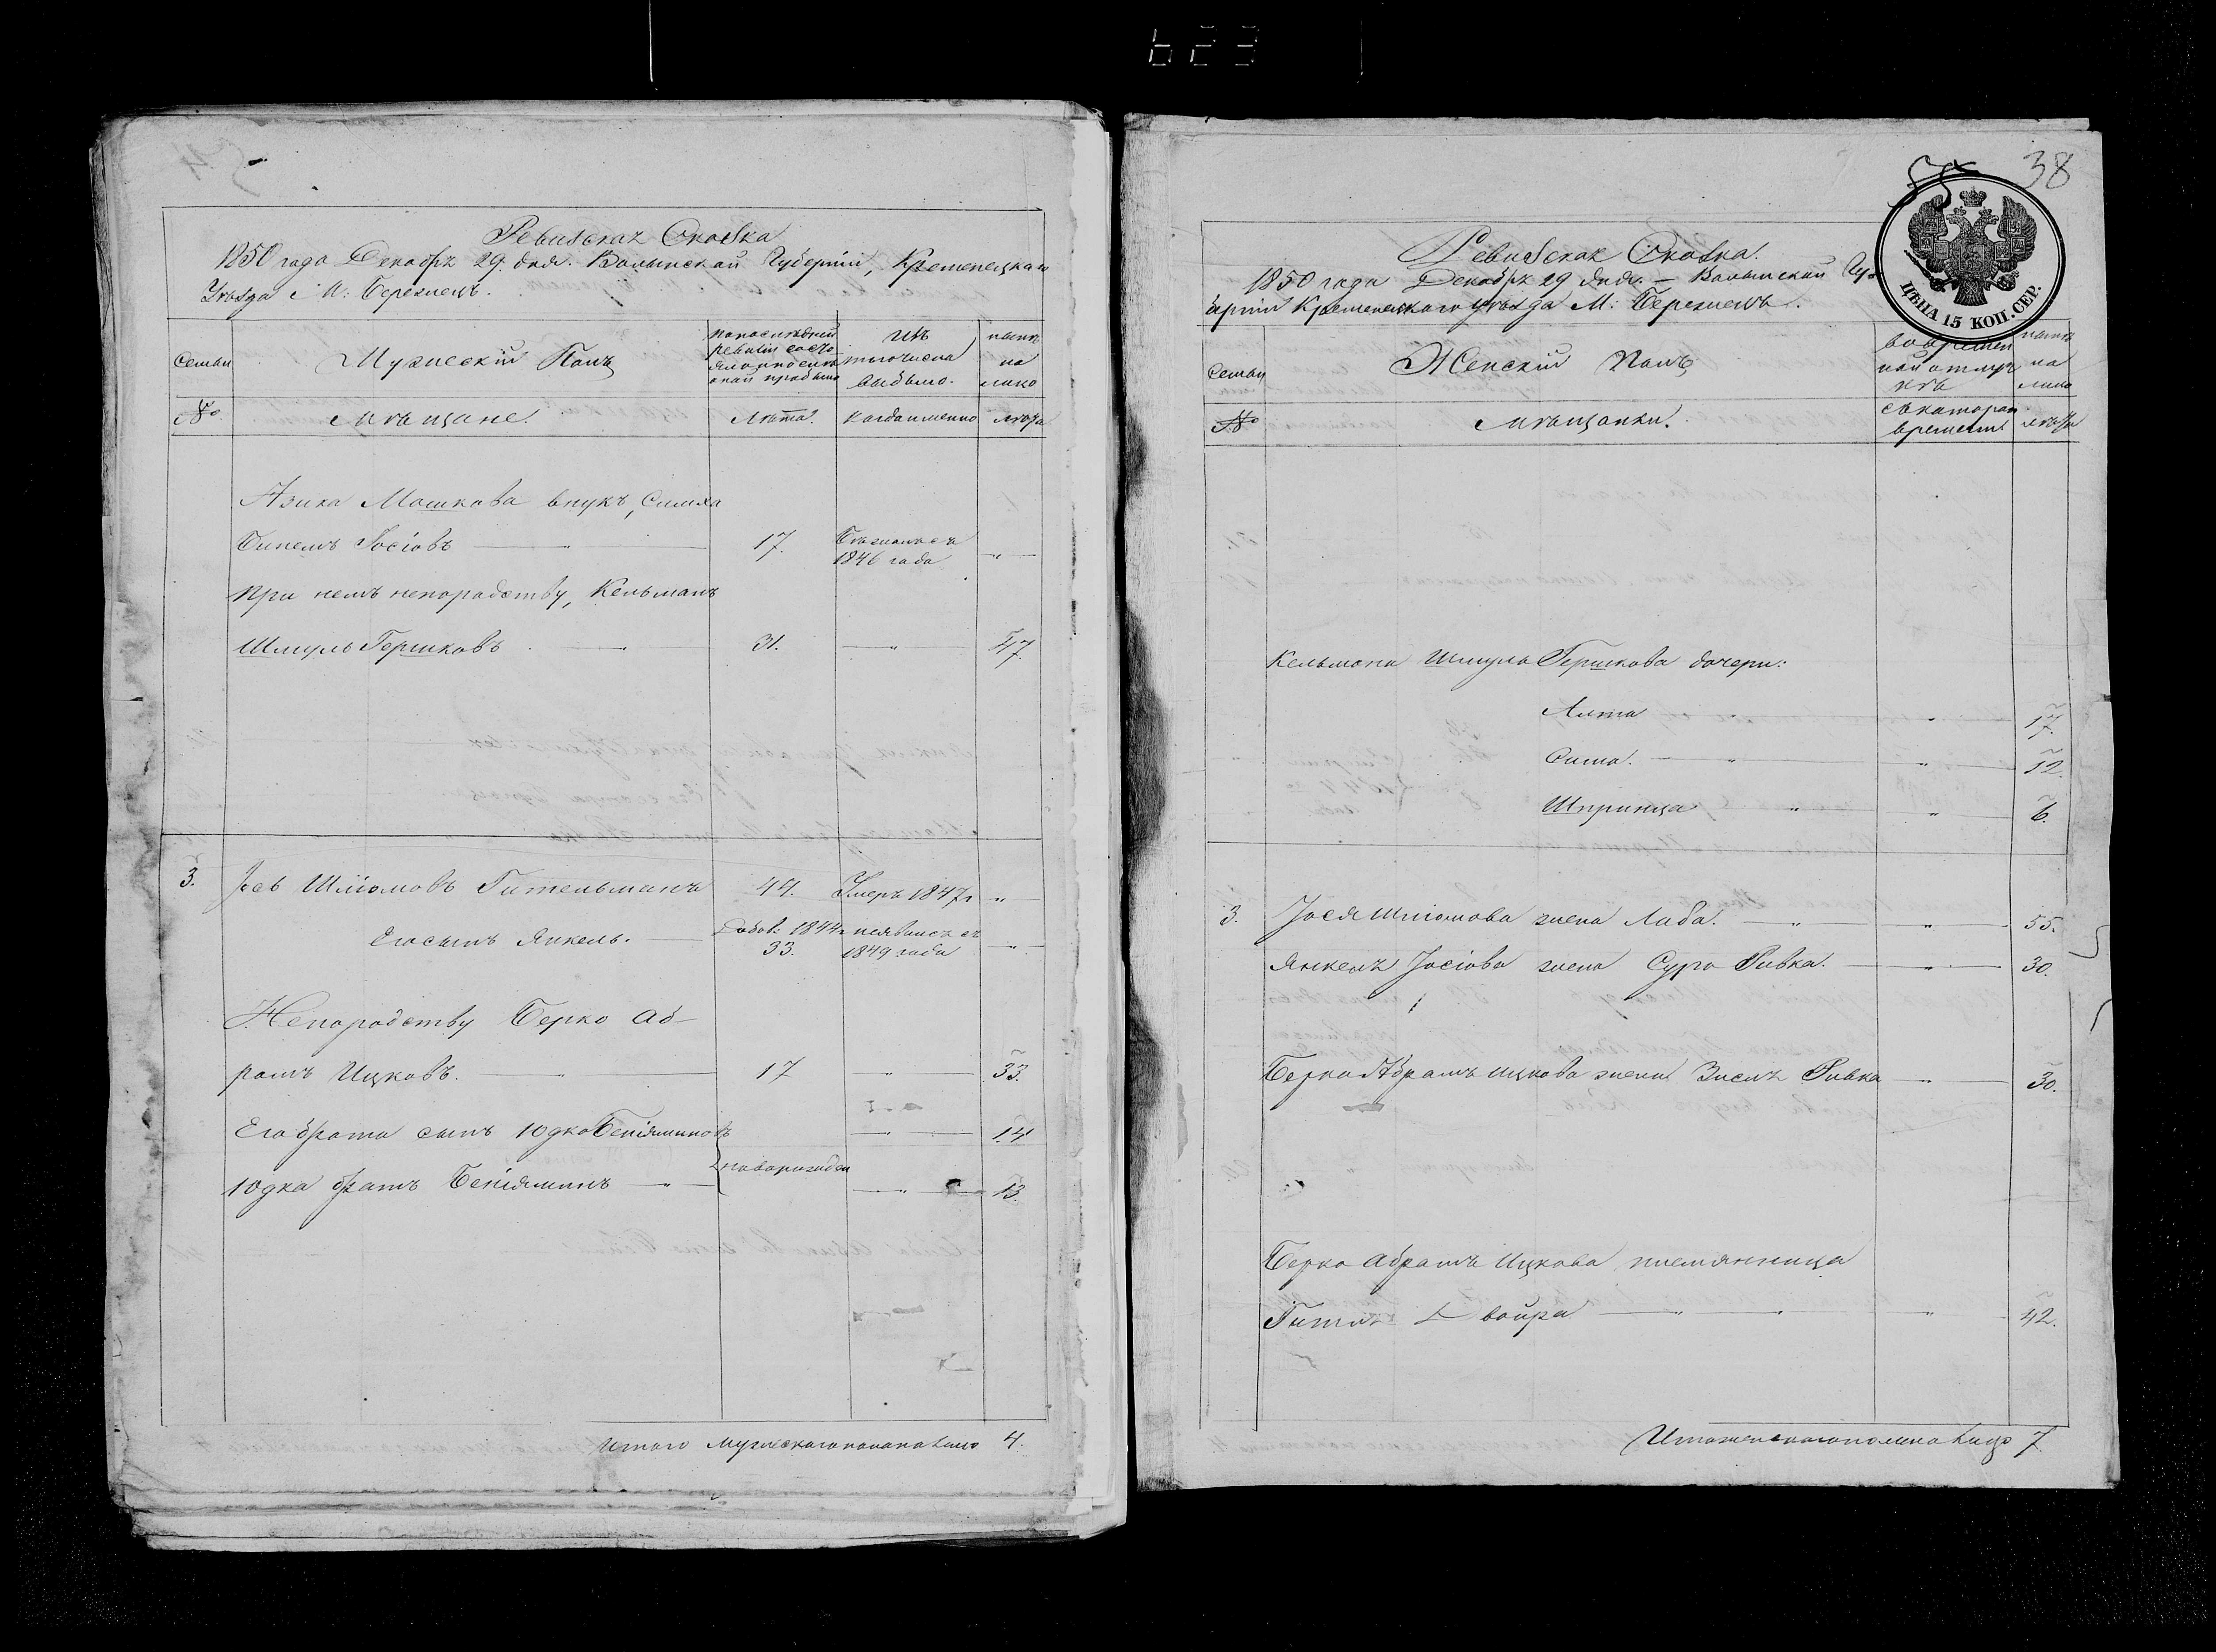 623
Ревизская Сказка
1850 года Декабря 29. дня. Волынской Губерніи, Кременецкаго
Уѣзда М: Бережець.
Семьи
Мужескій Полъ
По последней ревизіи состояло и после оной прибыло
Изъ того числа выбыло.
ныне на лицо
№
Мѣщане.
Лѣта.
Когда именно
лѣта
Азика Мошкова внукъ, Симха
Бинемъ Іосіовъ 17. Бѣжалъ съ 1846 года "
При немъ непородству, Кельманъ
Шмуль Гершковъ 31. " 47.
3. Іось Шліомовъ Гительманъ 44. Умеръ 1847 г "
Его сынъ Янкель. Добов: 1844 г 33. неявился съ 1849 года "
Непородству Берко Аб-
рамъ Ицковъ. 17 " 33.
Его брата сынъ Юдко Беніяминовъ " 14
новорожден
Юдка братъ Беніяминъ " 13.
Итого Мужескаго пола на лицо 4.
38
ЦѢНА 15 КОП. СЕР.
Ревизская Сказка.
1850 года Декабря 29 дня. – Волынской Гу-
берніи Кременецкаго уѣзда М: Бережець.
Семьи
Женскій Полъ
во временной отлучкѣ
ныне на лицо
№
Мѣщанки.
съ котораго времени
лѣта
Кельмана Шмуля Гершкова дочери:
Алта " " 17.
Сима. " " 12.
Шпринца " " 6.
3. Іося Шліомова жена Лаба. " " 55.
Янкеля Іосіова жена Сура Ривка. " 30.
Берка Абрамъ Ицкова жена Зисля Ривка " 30.
Берка Абрамъ Ицкова племянница
Гитля Двойра " " " 42.
Итого женскаго пола на лицо 7